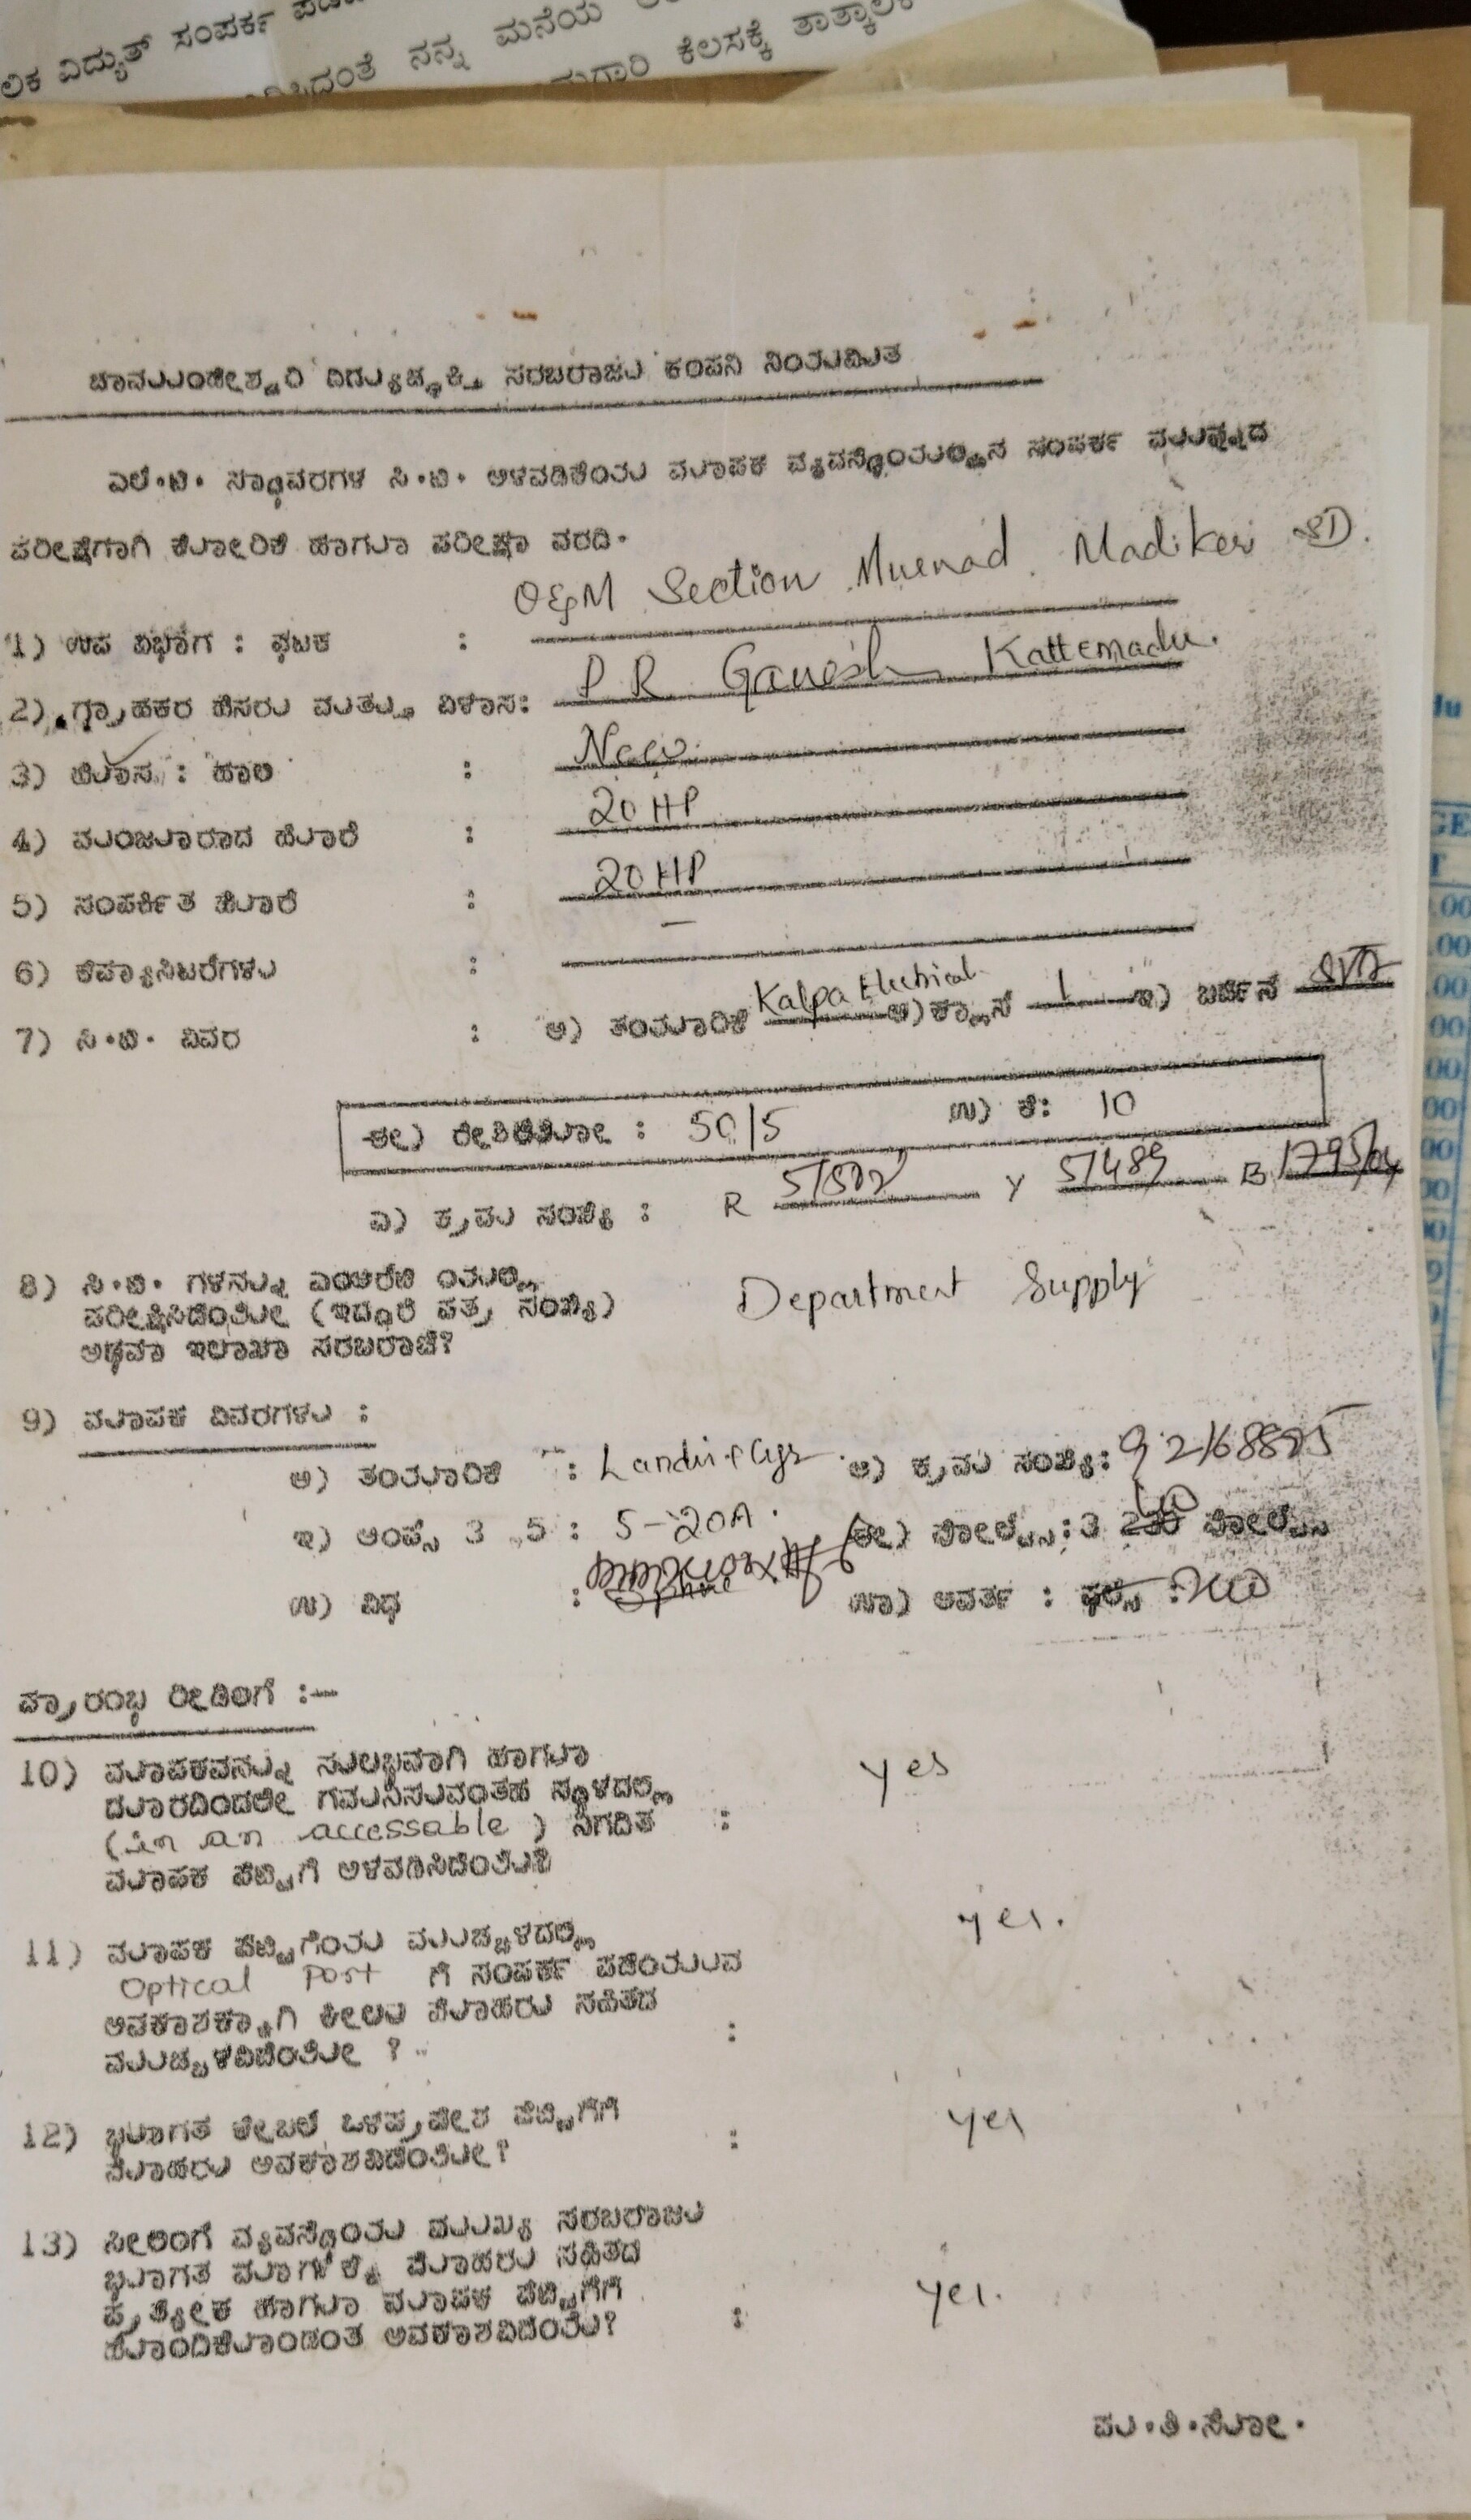 ವಿದ್ಯುತ್ ಸಂಪರ್ಕ
ನನ್ನ ಮನೆಯ
ಕೆಲಸಕ್ಕೆ
ಚಾಮುಂಡೇಶ್ವರಿ ವಿದ್ಯುಚ್ಛಕ್ತಿ ಸರಬರಾಜು ಕಂಪನಿ ನಿಯಮಿತ
ಎಲ್.ಟಿ. ಸ್ಥಾವರಗಳ ಸಿ.ಟಿ. ಅಳವಡಿಕೆಯ ಮಾಪಕ ವ್ಯವಸ್ಥೆಯಲ್ಲಿನ ಸಂಪರ್ಕ ಮುಪ್ಪಾದ
ಪರೀಕ್ಷೆಗಾಗಿ ಕೋರಿಕೆ ಹಾಗೂ ಪರೀಕ್ಷಾ ವರದಿ.
O&M Section Murnad. Madikeri SD.
1) ಉಪ ವಿಭಾಗ : ಘಟಕ :
2) ಗ್ರಾಹಕರ ಹೆಸರು ಮತ್ತು ವಿಳಾಸ: P R Ganesh Kattemadu.
3) ಹೊಸ : ಹಾಲಿ : New
4) ಮಂಜೂರಾದ ಹೊರೆ : 20 HP
5) ಸಂಪರ್ಕಿತ ಹೊರೆ : 20 HP
6) ಕೆಪ್ಯಾಸಿಟರ್‌ಗಳು : —
7) ಸಿ.ಟಿ. ವಿವರ : ಅ) ತಯಾರಿಕೆ Kalpa Electrical ಆ) ಕ್ಲಾಸ್ 1 ಇ) ಬರ್ಡನ್ 5VA
ಈ) ರೇಶಿಯೋ : 50/5 ಉ) ಕೆ: 10
ಎ) ಕ್ರಮ ಸಂಖ್ಯೆ : R Y 51489 B
8) ಸಿ.ಟಿ. ಗಳನ್ನು ಎಂಆರ್‌ಟಿ ಯಲ್ಲಿ
ಪರೀಕ್ಷಿಸಿದೆಯೇ (ಇದ್ದರೆ ಪತ್ರ ಸಂಖ್ಯೆ) Department Supply
ಅಥವಾ ಇಲಾಖಾ ಸರಬರಾಜೆ?
9) ಮಾಪಕ ವಿವರಗಳು :
ಅ) ತಯಾರಿಕೆ : Landis+Gyr ಆ) ಕ್ರಮ ಸಂಖ್ಯೆ:
ಇ) ಆಂಪ್ಸ್ 3 5 : 5-20A. ಈ) ವೋಲ್ಟ್ಸ್ : 3 ವೋಲ್ಟ್ಸ್
ಉ) ವಿಧ : ಊ) ಆವರ್ತ : ಪಲ್ಸ್ :
ಪ್ರಾರಂಭ ರೀಡಿಂಗ್ :—
10) ಮಾಪಕವನ್ನು ಸುಲಭವಾಗಿ ಹಾಗೂ
ದೂರದಿಂದಲೇ ಗಮನಿಸುವಂತಹ ಸ್ಥಳದಲ್ಲಿ yes
(in an accessable) ನಿಗದಿತ :
ಮಾಪಕ ಪೆಟ್ಟಿಗೆ ಅಳವಡಿಸಿದೆಯೆ
11) ಮಾಪಕ ಪೆಟ್ಟಿಗೆಯ ಮುಚ್ಚಳದಲ್ಲಿ yes.
Optical Port ಗೆ ಸಂಪರ್ಕ ಪಡೆಯುವ
ಅವಕಾಶಕ್ಕಾಗಿ ಕೀಲು ಮೊಹರು ಸಹಿತದ
ಮುಚ್ಚಳವಿದೆಯೇ ? :
12) ಭೂಗತ ಕೇಬಲ್ ಒಳಪ್ರವೇಶ ಪೆಟ್ಟಿಗೆಗೆ yes
ಮೊಹರು ಅವಕಾಶವಿದೆಯೇ? :
13) ಸೀಲಿಂಗ್ ವ್ಯವಸ್ಥೆಯ ಮುಖ್ಯ ಸರಬರಾಜು
ಭೂಗತ ಮಾರ್ಗಕ್ಕೆ ಮೊಹರು ಸಹಿತದ
ಪ್ರತ್ಯೇಕ ಹಾಗೂ ಮಾಪಕ ಪೆಟ್ಟಿಗೆಗೆ yes.
ಹೊಂದಿಕೊಂಡಂತೆ ಅವಕಾಶವಿದೆಯೆ? :
ಪು.ತಿ.ನೋ.